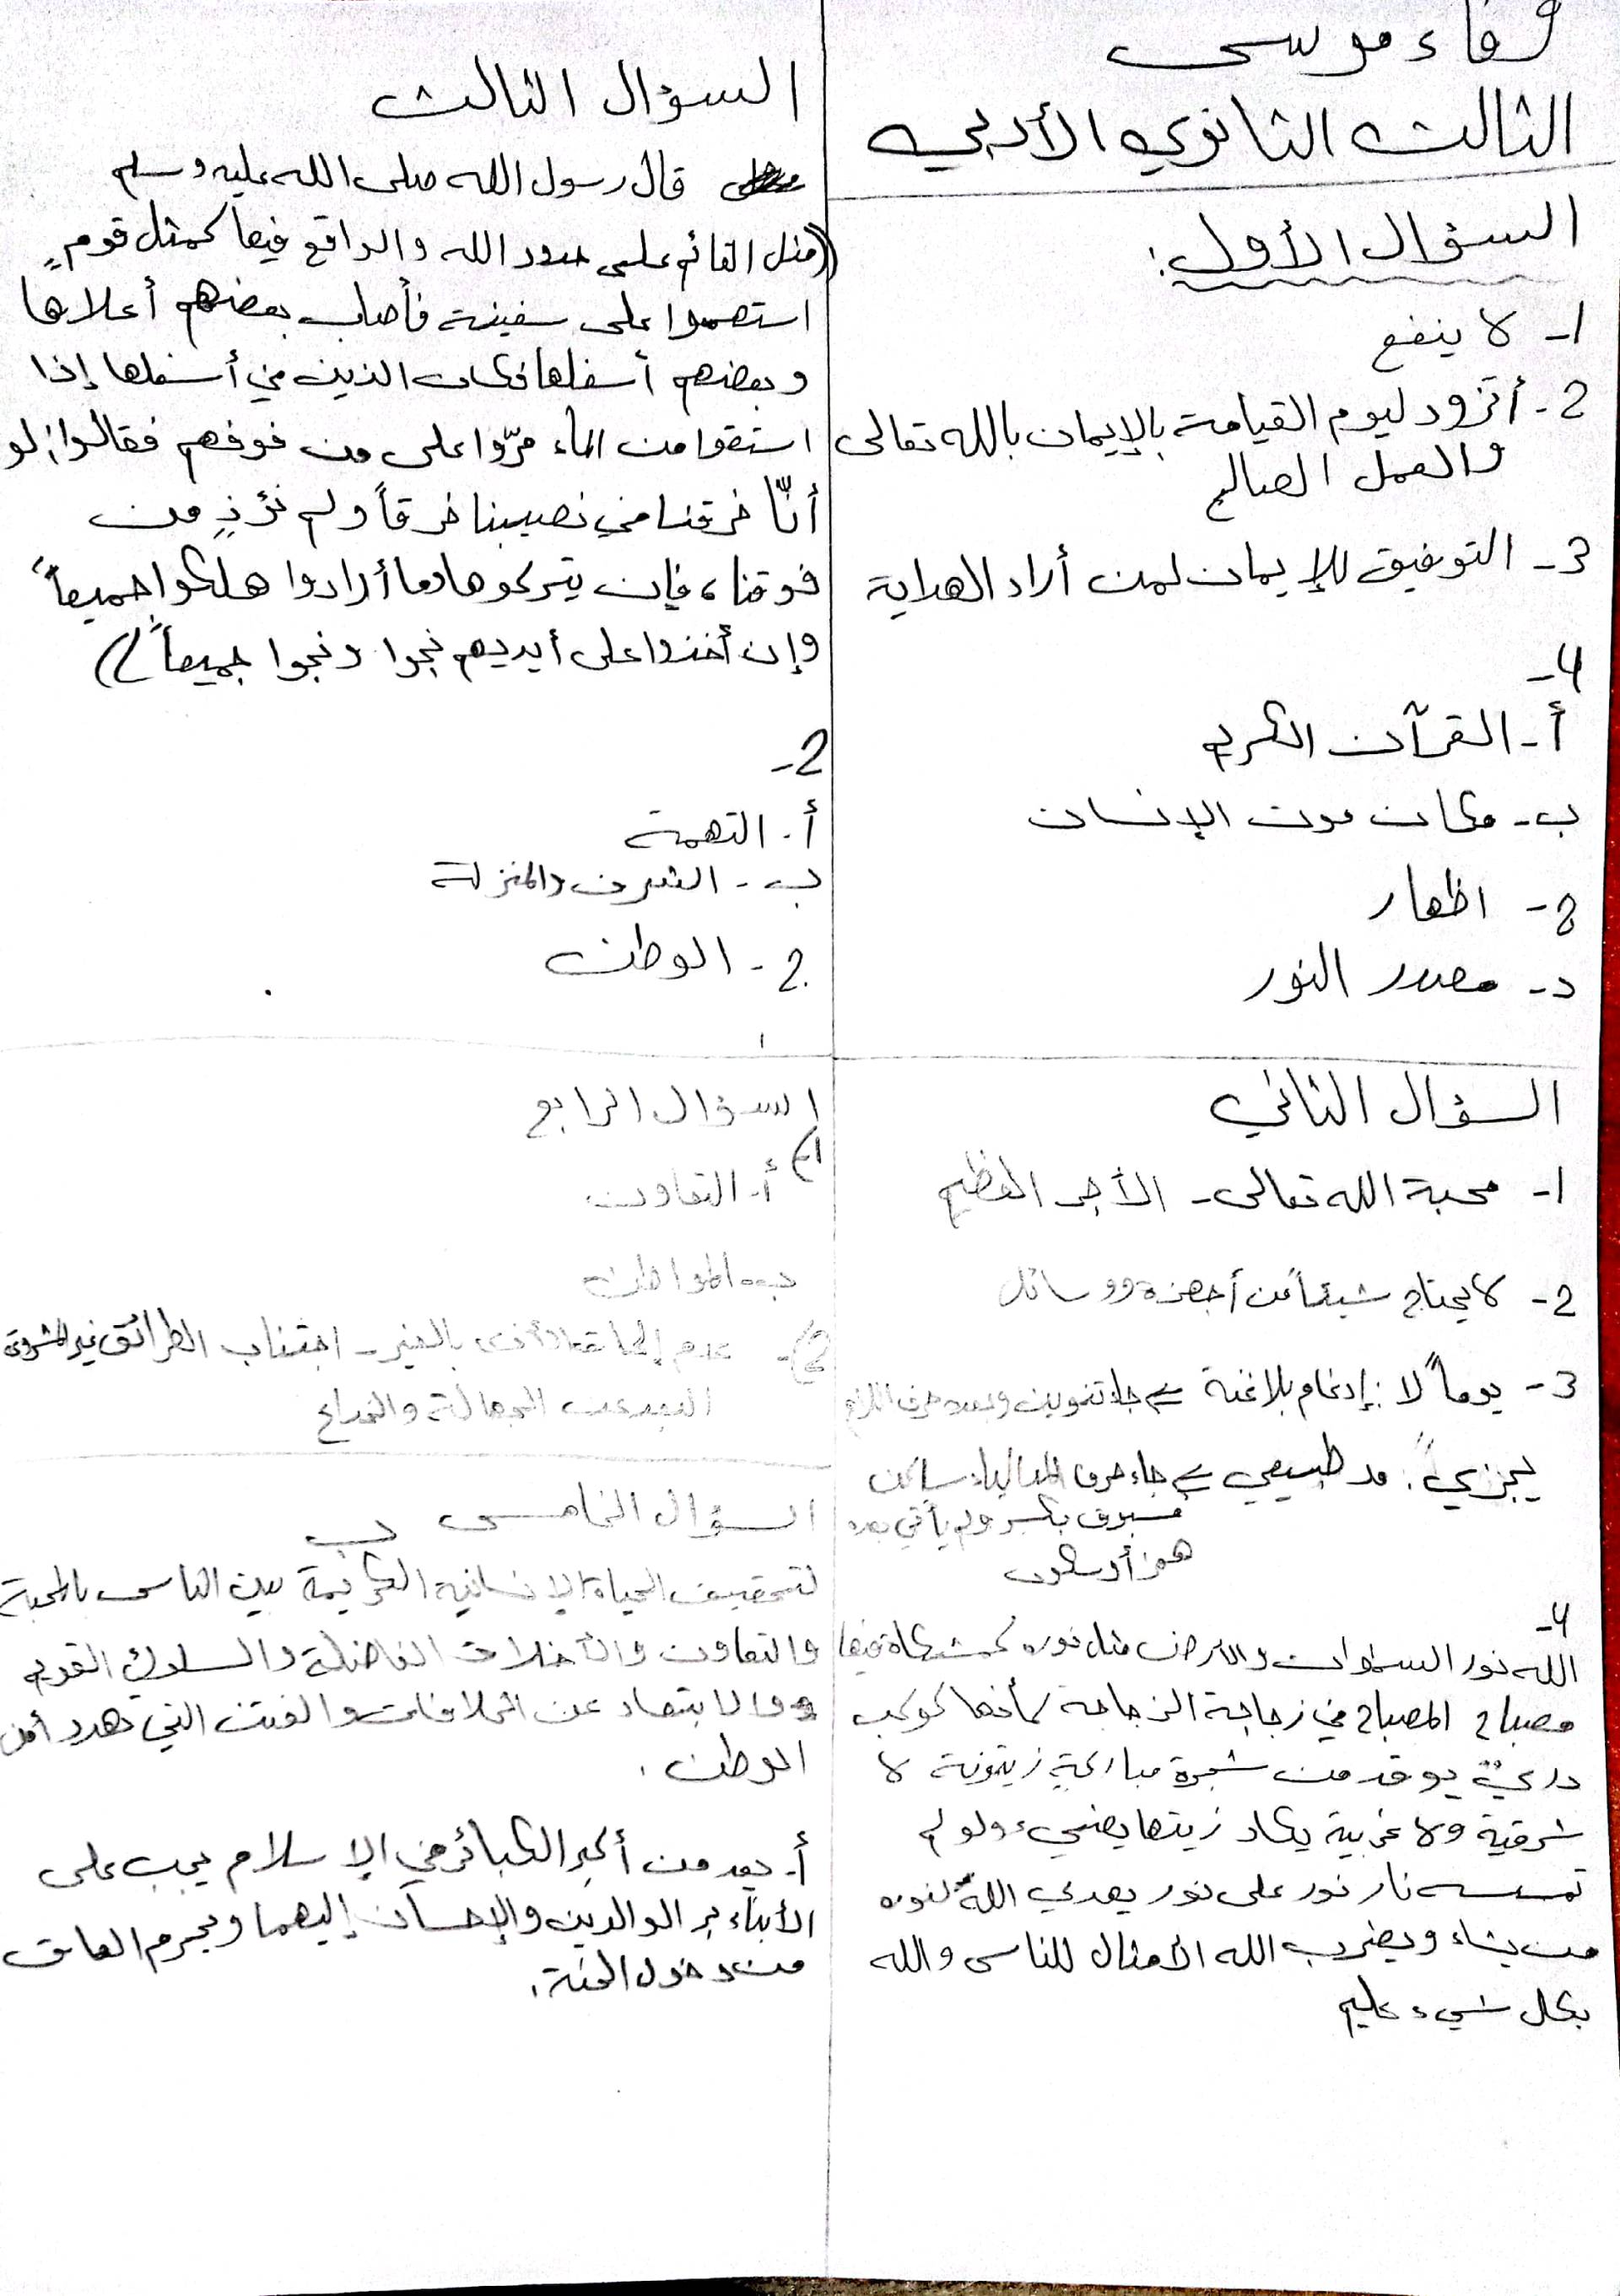 وفاء موسى
الثالث الثانوي الأدبي
السؤال الأول:
1- لا ينفع
2- أتزود ليوم القيامة بالإيمان بالله تعالى
والعمل الصالح
3- التوفيق للإيمان لمن أراد الهداية
4-
أ- القرآن الكريم
ب- مكان موت الإنسان
ج- اظهار
د- مصدر النور
السؤال الثاني
1- محبة الله تعالى - الأجر العظيم
2- لا يحتاج شيئاً من أجهزة ووسائل
3- يوماً لا: إدغام بلا غنة جاء تنوين وبعده حرف اللام
يجزي: مد طبيعي جاء حرف المد الياء ساكن
مسبوق بكسر ولم يأتي بعده
همز أو سكون
4-
الله نور السموات والأرض مثل نوره كمشكاة فيها
مصباح المصباح في زجاجة الزجاجة كأنها كوكب
دريٌّ يوقد من شجرة مباركةٍ زيتونة لا
شرقية ولا غربية يكاد زيتها يضيء ولو لم
تمسسه نار نور على نور يهدي الله لنوره
من يشاء ويضرب الله الأمثال للناس والله
بكل شيء عليم
السؤال الثالث
قال رسول الله صلى الله عليه وسلم
((مثل القائم على حدود الله والواقع فيها كمثل قومٍ
استهموا على سفينة فأصاب بعضهم أعلاها
وبعضهم أسفلها فكان الذين في أسفلها إذا
استقوا من الماء مرّوا على من فوقهم فقالوا: لو
أنّا خرقنا في نصيبنا خرقاً ولم نؤذٍ من
فوقنا، فإن يتركوها وما أرادوا هلكوا جميعاً
وإن أخذوا على أيديهم نجوا ونجوا جميعاً))
2-
أ- التهمة
ب- الشرف والمنزلة
ج- الوطن
السؤال الرابع
1)
أ- التعاون
ب- المواطن
2)- عدم إلحاق الأذى بالغير - اجتناب الطرائق غير المشروعة
البعد عن الجهالة والخداع
السؤال الخامس
ب
لتحقيق الحياة الإنسانية الكريمة بين الناس بالمحبة
والتعاون والأخلاق الفاضلة والسلوك القويم
والابتعاد عن الخلافات والفتن التي تهدد أمن
الوطن.
أ- يعد من أكبر الكبائر في الإسلام يجب على
الأبناء بر الوالدين والإحسان إليهما ويحرم العاق
من دخول الجنة.